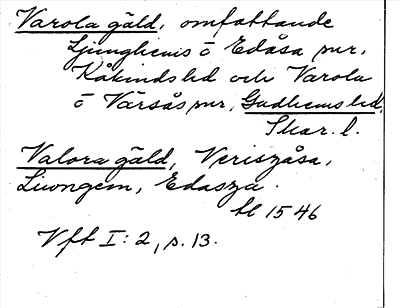 Varola gäld, omfattande
Ljunghems o Edåsa snr,
Kåkinds hd och Varola
o Värsås snr, Gudhems hd,
Skar. l.
Valora gäld, Veriszåsa,
Liwongem, Edasza.
hl 1546
Vft I:2, s. 13.